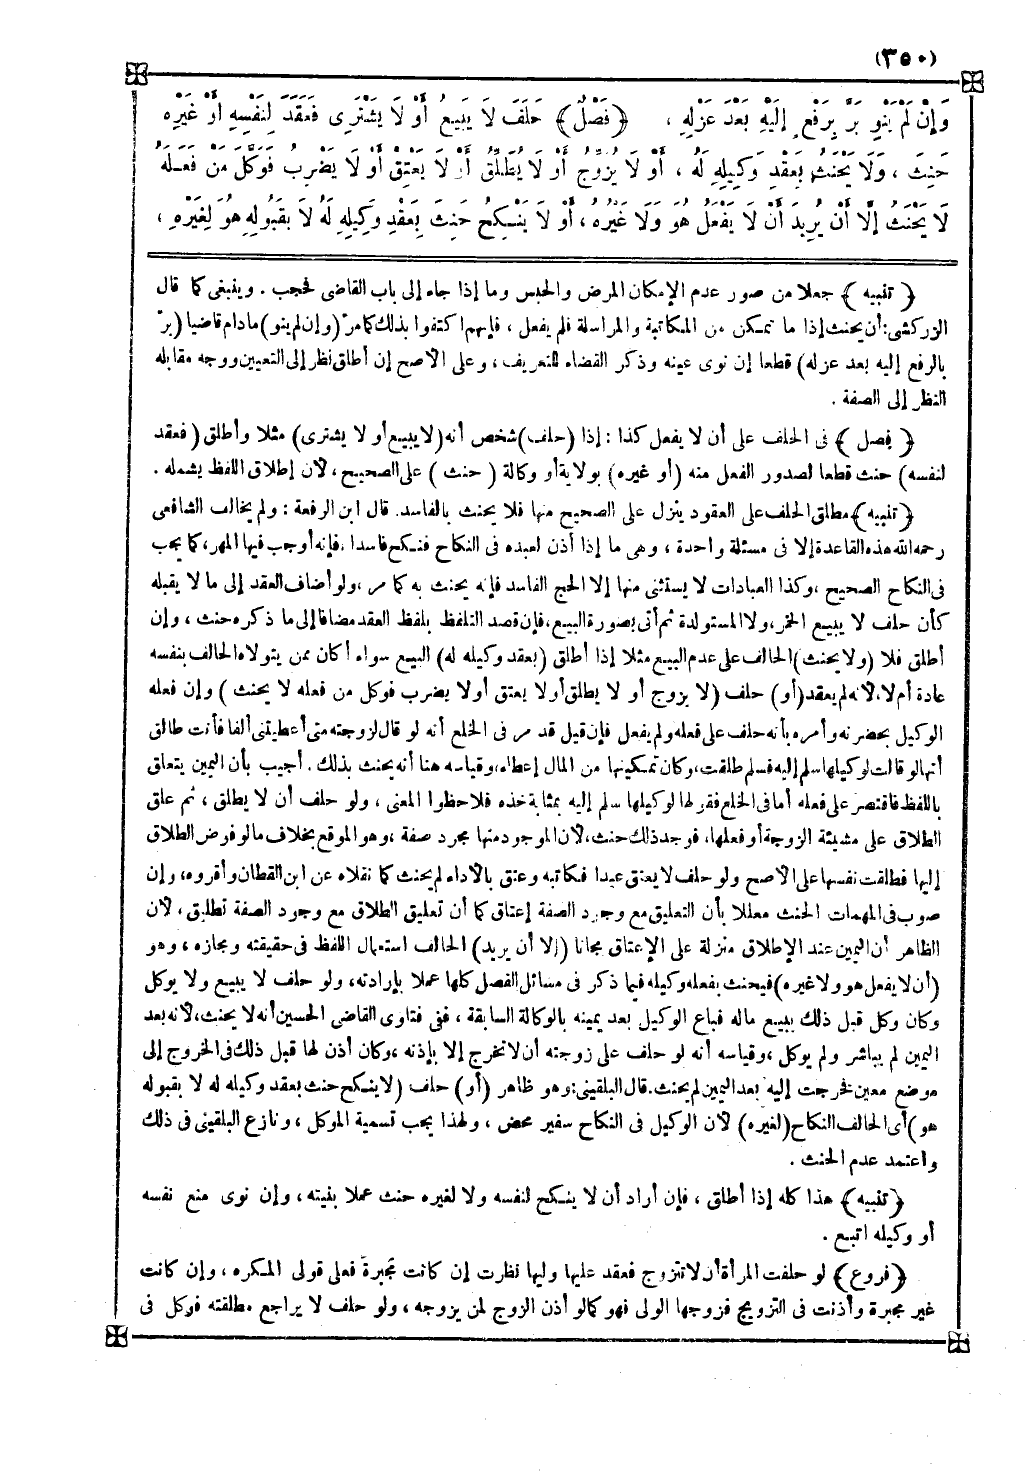 (٣٥٠)
وَإِنْ لَمْ يَنْوِ بَرَّ بِرَفْعٍ إِلَيْهِ بَعْدَ عَزْلِهِ ، ﴿فَصْلٌ﴾ حَلَفَ لَا يَبِيعُ أَوْ لَا يَشْتَرِى فَعَقَدَ لِنَفْسِهِ أَوْ غَيْرِهِ
حَنِثَ ، وَلَا يَحْنَثُ بِعَقْدِ وَكِيلِهِ لَهُ ، أَوْ لَا يُزَوِّجُ أَوْ لَا يُطَلِّقُ أَوْ لَا يَعْتِقُ أَوْ لَا يَضْرِبُ فَوَكَّلَ مَنْ فَعَلَهُ
لَا يَحْنَثُ إِلَّا أَنْ يُرِيدَ أَنْ لَا يَفْعَلَ هُوَ وَلَا غَيْرُهُ ، أَوْ لَا يَنْكِحُ حَنِثَ بِعَقْدِ وَكِيلِهِ لَهُ لَا بِقَبُولِهِ هُوَ لِغَيْرِهِ ،
﴿ تنبيه ﴾ جعلا من صور عدم الإمكان المرض والحبس وما إذا جاء إلى باب القاضى فحجب . وينبغى كما قال
الزركشى : أن يحنث إذا ما تمكن من المكاتبة والمراسلة فلم يفعل ، فإنهم اكتفوا بذلك كما مرّ (وإن لم ينو) ما دام قاضيا (برّ
بالرفع إليه بعد عزله) قطعا إن نوى عينه وذكر القضاء للتعريف ، وعلى الأصح إن أطلق نظر إلى التعيين ووجه مقابله
النظر إلى الصفة .
﴿ فصل ﴾ فى الحلف على أن لا يفعل كذا : إذا (حلف) شخص أنه (لا يبيع أو لا يشترى) مثلا وأطلق (فعقد
لنفسه) حنث قطعا لصدور الفعل منه (أو غيره) بولاية أو وكالة (حنث) على الصحيح ، لأن إطلاق اللفظ يشمله .
﴿تنبيه﴾ مطلق الحلف على العقود ينزل على الصحيح منها فلا يحنث بالفاسد. قال ابن الرفعة : ولم يخالف الشافعى
رحمه الله هذه القاعدة إلا فى مسئلة واحدة ، وهى ما إذا أذن لعبده فى النكاح فنكح فاسدا ، فإنه أوجب فيها المهر، كما يجب
فى النكاح الصحيح ، وكذا العبادات لا يستثنى منها إلا الحج الفاسد فإنه يحنث به كما مر ، ولو أضاف العقد إلى ما لا يقبله
كأن حلف لا يبيع الخمر، ولا المستولدة ثم أتى بصورة البيع ، فإن قصد التلفظ بلفظ العقد مضافا إلى ما ذكره حنث ، وإن
أطلق فلا (ولا يحنث) الحالف على عدم البيع مثلا إذا أطلق (بعقد وكيله له) البيع سواء أكان ممن يتولاه الحالف بنفسه
عادة أم لا، لأنه لم يعقد (أو) حلف (لا يزوج أو لا يطلق أو لا يعتق أو لا يضرب فوكل من فعله لا يحنث) وإن فعله
الوكيل بحضرته وأمره بأنه حلف على فعله ولم يفعل فإن قيل قد مر فى الخلع أنه لو قال لزوجته متى أعطيتنى ألفا فأنت طالق
أنها لو قالت لوكيلها سلم إليه فسلم طلقت، وكان تمكينها من المال إعطاء، وقياسه هنا أنه يحنث بذلك . أجيب بأن اليمين يتعلق
باللفظ فاقتصر على فعله أما فى الخلع فقولها لوكيلها سلم إليه بمثابة خذه فلاحظوا المعنى ، ولو حلف أن لا يطلق ، ثم علق
الطلاق على مشيئة الزوجة أو فعلها، فوجد ذلك حنث، لأن الموجود منها مجرد صفة ، وهو الموقع بخلاف ما لو فوض الطلاق
إليها فطلقت نفسها على الأصح ولو حلف لا يعتق عبدا فكاتبه وعتق بالأداء لم يحنث كما نقلاه عن ابن القطان وأقروه، وإن
صوب فى المهمات الحنث معللا بأن التعليق مع وجود الصفة إعتاق كما أن تعليق الطلاق مع وجود الصفة تطليق ، لأن
الظاهر أن اليمين عند الإطلاق منزلة على الإعتاق مجانا (إلا أن يريد) الحالف استعمال اللفظ فى حقيقته ومجازه ، وهو
(أن لا يفعل هو ولا غيره) فيحنث بفعله وكيله فيما ذكر فى مسائل الفصل كلها عملا بإرادته، ولو حلف لا يبيع ولا يوكل
وكان وكل قبل ذلك ببيع ماله فباع الوكيل بعد يمينه بالوكالة السابقة ، ففى فتاوى القاضى الحسين أنه لا يحنث، لأنه بعد
اليمين لم يباشر ولم يوكل ، وقياسه أنه لو حلف على زوجته أن لا تخرج إلا بإذنه ، وكان أذن لها قبل ذلك فى الخروج إلى
موضع معين فخرجت إليه بعد اليمين لم يحنث. قال البلقينى : وهو ظاهر (أو) حلف (لا ينكح حنث بعقد وكيله له لا بقبوله
هو) أى الحالف النكاح (لغيره) لأن الوكيل فى النكاح سفير محض ، ولهذا يجب تسمية الموكل ، ونازع البلقينى فى ذلك
واعتمد عدم الحنث .
﴿تنبيه﴾ هذا كله إذا أطلق ، فإن أراد أن لا ينكح لنفسه ولا لغيره حنث عملا بنيته ، وإن نوى منع نفسه
أو وكيله اتبع .
﴿فروع﴾ لو حلفت المرأة أن لا تتزوج فعقد عليها وليها نظرت إن كانت مجبرة فعلى قولى المكره ، وإن كانت
غير مجبرة وأذنت فى التزويج فزوجها الولى فهو كما لو أذن الزوج لمن يزوجه ، ولو حلف لا يراجع مطلقته فوكل فى